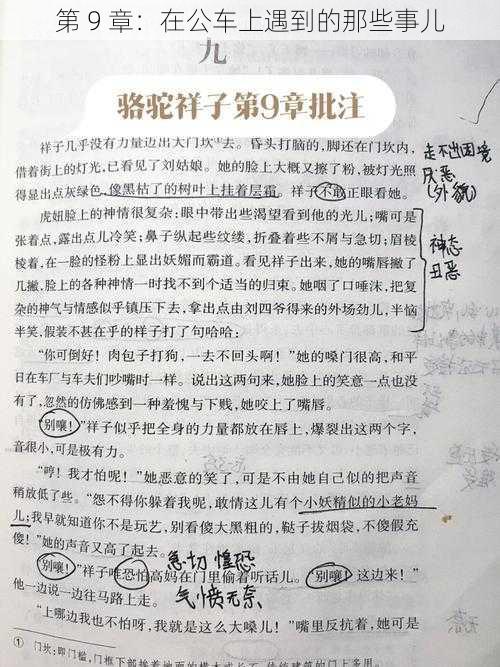 第 9 章：在公车上遇到的那些事儿
九
骆驼祥子第9章批注
祥子几乎没有力量迈出大门坎①去。昏头打脑的,脚还在门坎内,
借着街上的灯光,已看见了刘姑娘。她的脸上大概又擦了粉,被灯光照
得显出点灰绿色,像黑枯了的树叶上挂着层霜。祥子不敢正眼看她。
走不出困境
厌恶
(外貌)
虎妞脸上的神情很复杂:眼中带出些渴望看到他的光儿;嘴可是
张着点,露出点儿冷笑;鼻子纵起些纹缕,折叠着些不屑与急切;眉棱
棱着,在一脸的怪粉上显出妖媚而霸道。看见祥子出来,她的嘴唇撇了
几撇,脸上的各种神情一时找不到个适当的归束。她咽了口唾沫,把复
杂的神气与情感似乎镇压下去,拿出点由刘四爷得来的外场劲儿,半恼
半笑,假装不甚在乎的样子打了句哈哈:
神态
丑恶
“你可倒好！肉包子打狗,一去不回头啊！”她的嗓门很高,和平
日在车厂与车夫们吵嘴时一样。说出这两句来,她脸上的笑意一点也没
有了,忽然的仿佛感到一种羞愧与下贱,她咬上了嘴唇。
“别嚷！”祥子似乎把全身的力量都放在唇上,爆裂出这两个字,
音很小,可是极有力。
“哼！我才怕呢！”她恶意的笑了,可是不由她自己似的把声音
稍放低了些。“怨不得你躲着我呢,敢情这儿有个小妖精似的小老妈
儿;我早就知道你不是玩艺,别看傻大黑粗的,鞑子拔烟袋,不傻假充
傻！”她的声音又高了起去。
急切 惶恐
“别嚷！”祥子唯恐怕高妈在门里偷着听话儿。“别嚷！这边来！”
他一边说一边往马路上走。
气愤无奈
“上哪边我也不怕呀,我就是这么大嗓儿！”嘴里反抗着,她可是